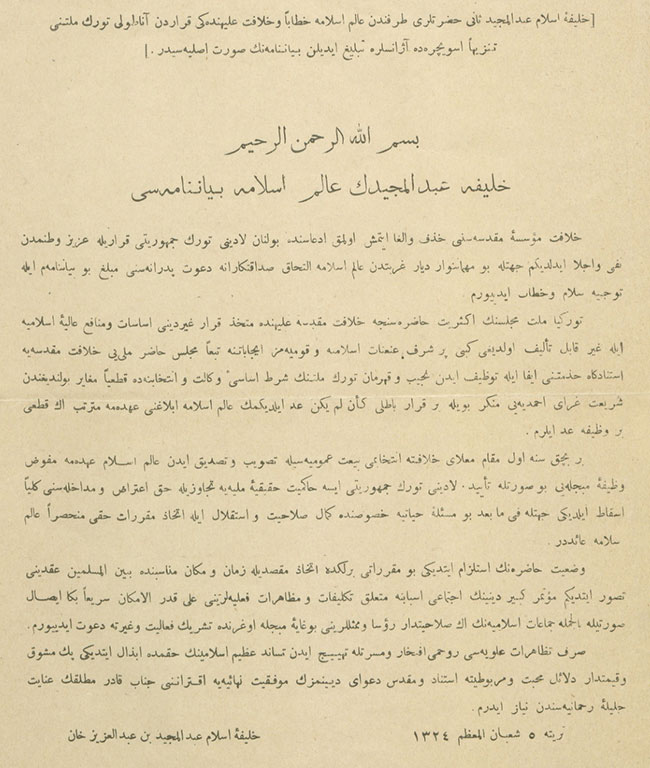 [خلیفهٔ اسلام عبدالمجید ثانی حضرتلری طرفندن عالم اسلامه خطاباً وخلافت علیهنده‌کی قراردن آناطولی تورك ملتنی
تنزیهاً اسویچره‌ده آژانسلره تبلیغ ایدیلن بیاننامه‌نك صورت اصلیه‌سیدر .]
بسم الله الرحمن الرحیم
خلیفه عبدالمجیدك عالم اسلامه بیاننامه‌سی
خلافت مؤسسهٔ مقدسه‌سنی حذف والغا ایتمش اولمق ادعاسنده بولنان لادینی تورك جمهوریتی قراریله عزیز وطنمدن
نفی واجلا ایدلدیكم جهتله بو مهاسنوار دیار غربتدن عالم اسلامه التحاق صداقتكارانه دعوت پدرانه‌سنی مبلغ بو بیاننامه‌م ایله
توجیه سلام وخطاب ایدییورم .
توركیا ملت مجلسنك اكثریت حاضره‌سنجه خلافت مقدسه علیهنده متخذ قرار غیردینی اساسات ومنافع عالیهٔ اسلامیه
ایله غیر قابل تألیف اولدیغی كبی پر شرف عنعنات اسلامیه و قومیه‌مز ایجاباتنه تبعاً مجلس حاضر ملی‌یی خلافت مقدسه‌یه
استنادكاه خدمتنی ایفا ایله توظیف ایدن نجیب و قهرمان تورك ملتنك شرط اساسیٔ وكالت و انتخابنه‌ده قطعیاً مغایر بولندیغندن
شریعت غرای احمدیه‌یی منكر بویله بر قرار باطلی كأن لم یكن عد ایلدیكمك عالم اسلامه ابلاغنی عهده‌مه مترتب اك قطعی
بر وظیفه عد ایلرم .
بر بچق سنه اول مقام معلای خلافته انتخابمی بیعت عمومیه‌سیله تصویب وتصدیق ایدن عالم اسلام عهده‌مه مفوض
وظیفهٔ مبجله‌یی بو صورتله تأیید . لادینی تورك جمهوریتی ایسه حاكمیت حقیقیهٔ ملیه‌یه تجاوزیله حق اعتراض و مداخله‌سنی كلیاً
اسقاط ایلدیكی جهتله فی ما بعد بو مسئلهٔ حیاتیه خصوصنده كمال صلاحیت و استقلال ایله اتخاذ مقررات حقی منحصراً عالم
سلامه عائددر .
وضعیت حاضره‌نك استلزام ایتدیكی بو مقرراتی برلكده اتخاذ مقصدیله زمان و مكان مناسبنده بین المسلمین عقدینی
تصور ایتدیكم مؤتمر كبیر دینینك اجتماعی اسبابنه متعلق تكلیفات و مظاهرات فعلیه‌لرینی علی قدر الامكان سریعاً بكا ایصال
صورتیله بالجمله جماعات اسلامیه‌نك اك صلاحیتدار رؤسا وممثللرینی بوغایهٔ مبجله اوغرنده تشریك فعالیت وغیرته دعوت ایدییورم .
صرف تظاهرات علویه‌سی روحمی افتخار ومسرتله تهییج ایدن تساند عظیم اسلامینك حقمده ابذال ایتدیكی پك مشوق
وقیمتدار دلائل محبت ومربوطیته استناد ومقدس دعوای دینیمزك موفقیت نهائیه‌یه اقتراننی جناب قادر مطلقك عنایت
جلیلهٔ رحمانیه‌سندن نیاز ایدرم .
تریته ٥ شعبان المعظم ١٣٢٤
خلیفهٔ اسلام عبدالمجید بن عبدالعزیز خان